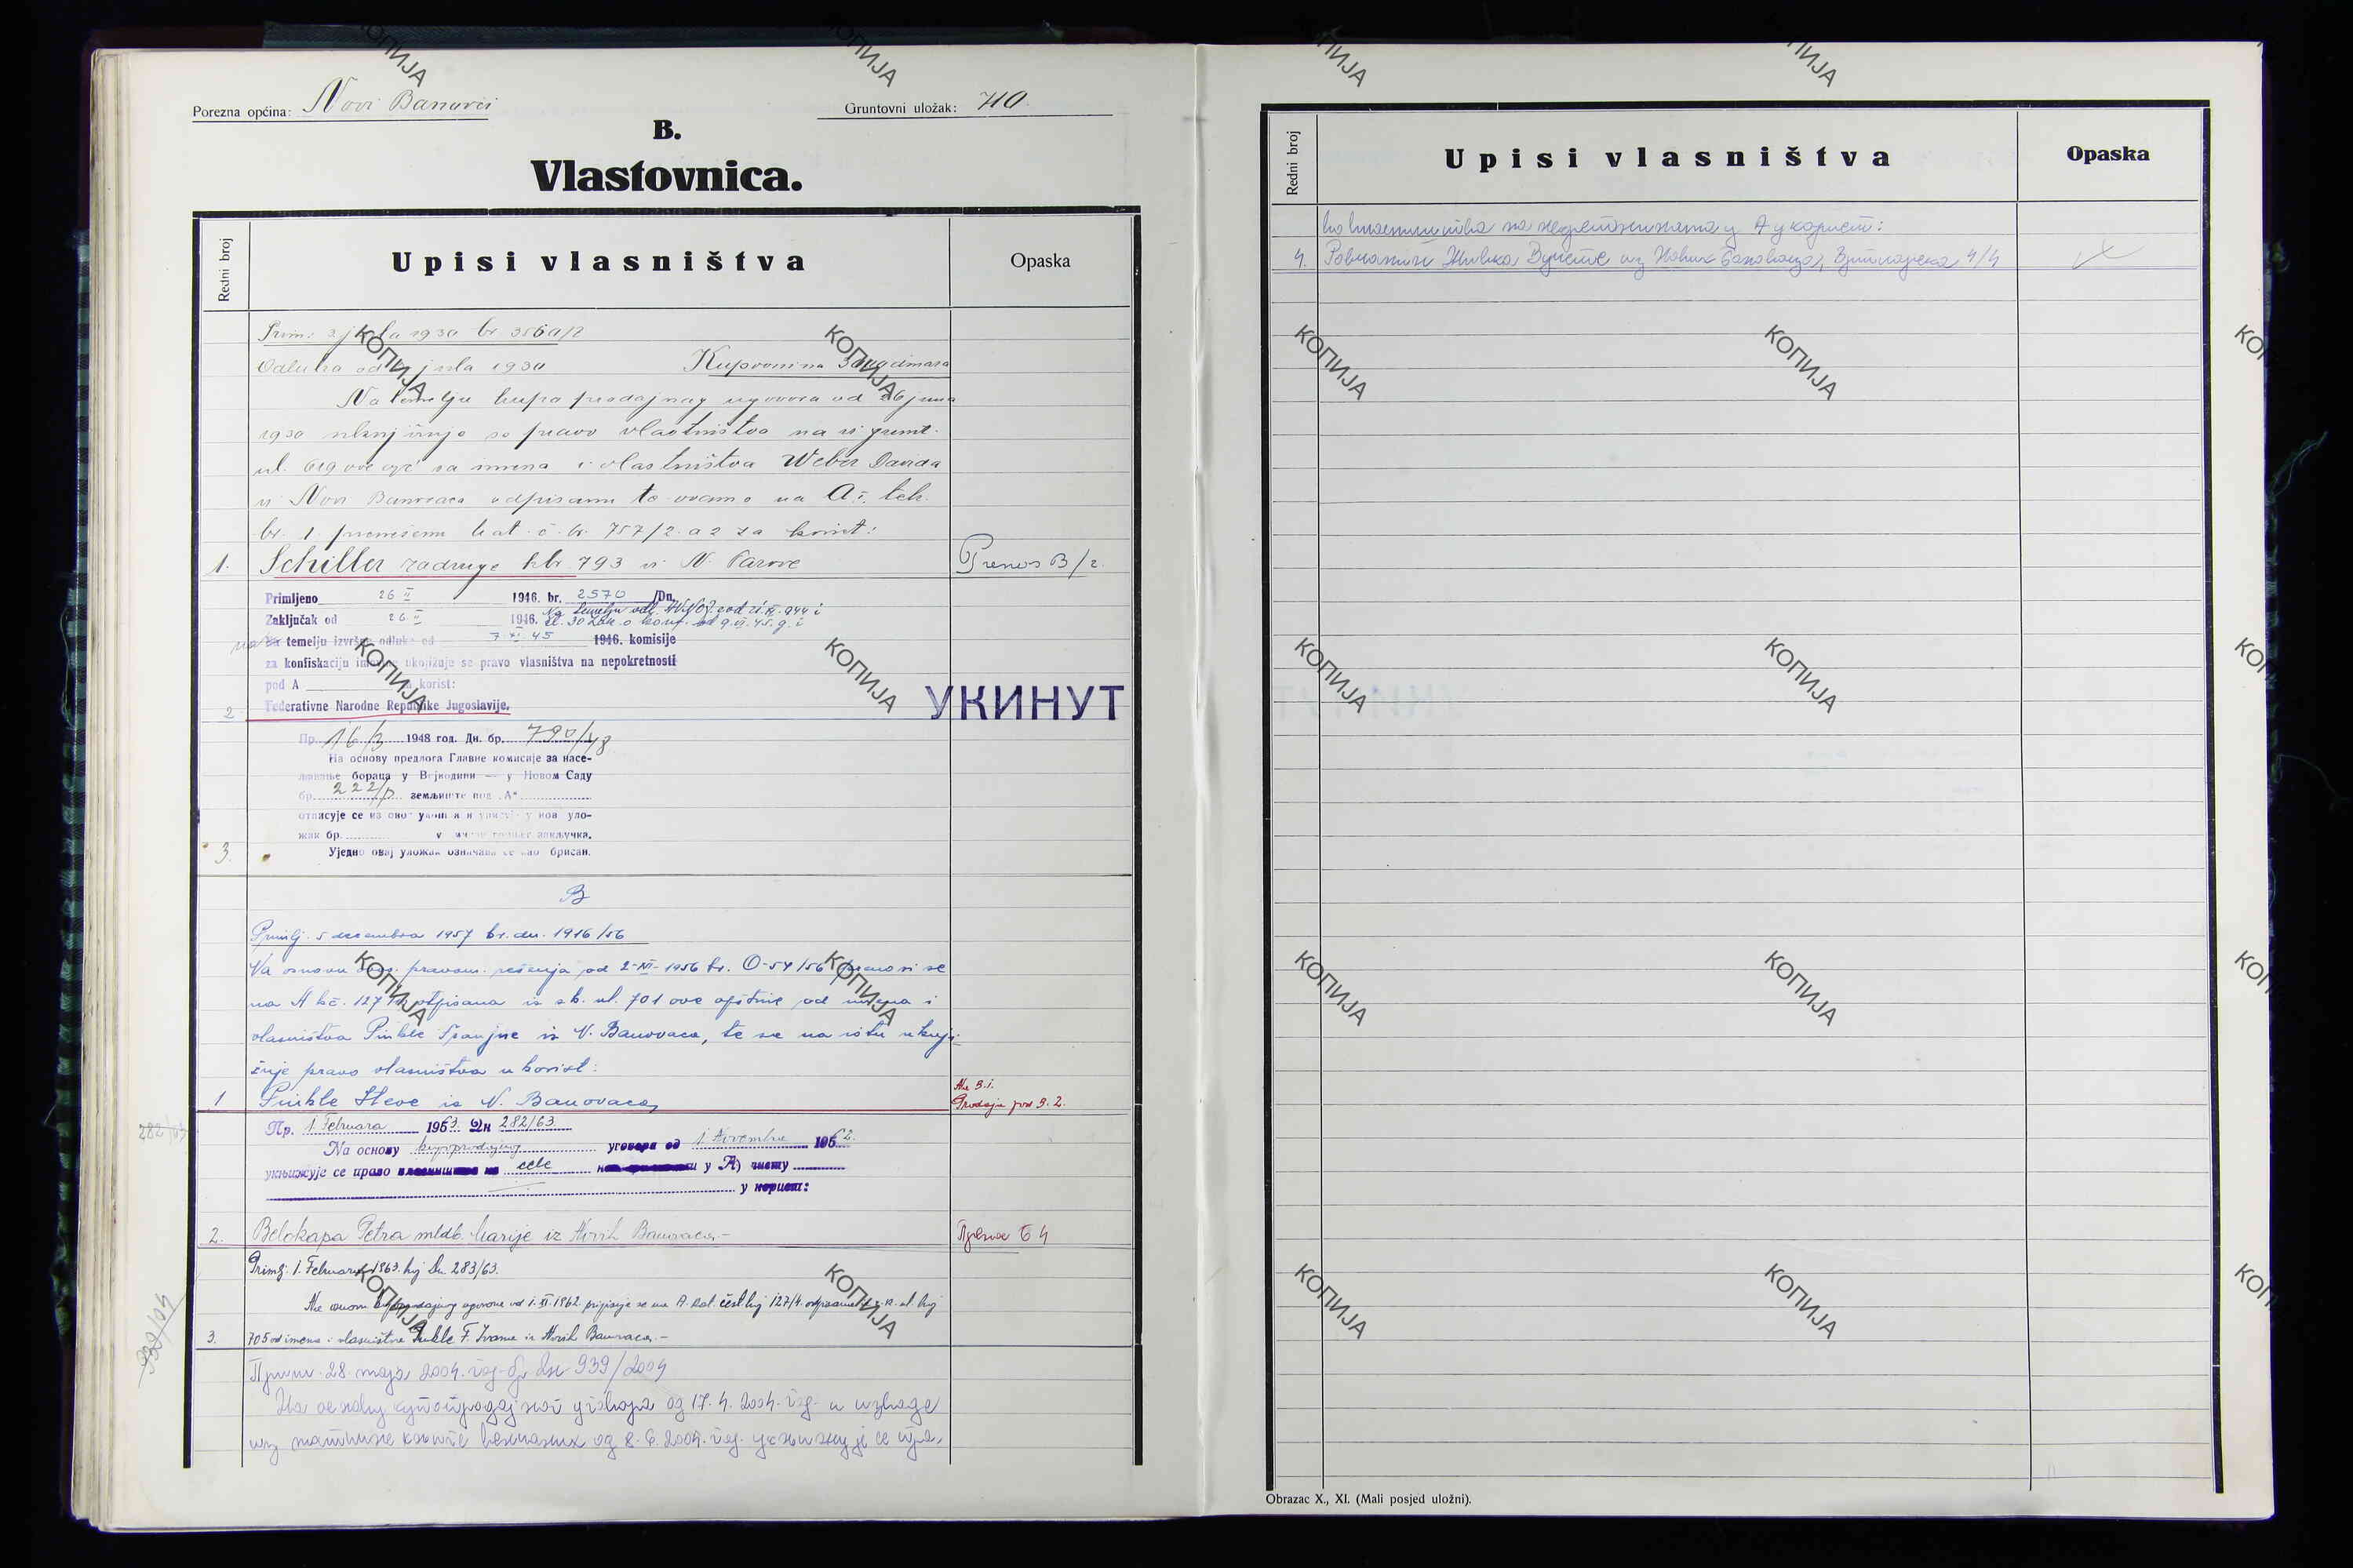 Porezna općina: Novi Banovci
Gruntovni uložak: 710.
B.
Vlastovnica.
Redni broj
Upisi vlasništva
Opaska
Prim: 2 jula 1930 br 3560/2
Odluka od jula 1930 Kupovnina dinara
Na temelju kupo prodajnog ugovora od 26 juna
1930 uknjižuje se pravo vlastništva na iz grunt.
ul. 619 ove opć sa imena i vlastništva Weber Davida
u Novi Banovaca odpisanu te ovamo na A.I. tek.
br. 1 prenešenu kat. č. br. 757/2.a2 za korist:
1. Schiller zadruge kbr. 793 iz N. Pazove
Prenos B/2.
Primljeno 26 II 1946. br. 2570 /Dn.
Zaključak od 26 II 1946. Na temelju odl. AVNOJ. od 21.XI.944 i
čl. 30 Zak. o konf. od 9.VI.45.g. i
na temelju izvršne odluke od 7 XI 45 1946. komisije
za konfiskaciju imovine uknjižuje se pravo vlasništva na nepokretnosti
pod A korist:
2 Federativne Narodne Republike Jugoslavije.
УКИНУТ
Пр. 16/3 1948 год. Дн. бр. 790/48
На основу предлога Главне комисије за насе-
љавање бораца у Војводини — у Новом Саду
бр. 222/р земљиште под „А“
отписује се из овог улошка и уписује у нов уло-
жак бр. закључка.
3. Уједно овај уложак означава се као брисан.
B
Primlj. 5 decembra 1957 br. dn. 1916/56
Na osnovu pravosn. rešenja od 2-XI-1956 br. O-54/56 prenosi se
na A kč. 127/ otpisana iz zk. ul. 701 ove opštine od imena i
vlasništva Pinkle Franjne iz N. Banovaca, te se na istu uknji-
žuje pravo vlasništva u korist:
1 Pinkle Steve iz N. Banovaca,
Prodaja pod B.2.
282/63
Пр. 1 Februara 1963. Дн 282/63
На основу kupoprodajnog уговора од 1 Novembra 1962.
укњижује се право власништва на cele у А) листу
у корист:
2. Belokapa Petra mldb. Marije iz Novih Banovaca.-
Пренос Б 4
Primlj: 1. Februara 1963. broj Dn 283/63.
Na osnovu kupoprodajnog ugovora od 1. XI. 1962. pripisuje se na A. kat. čest broj 127/4. otpisane iz z.k. ul. broj
3. 705 od imena i vlasništva Pinkle F. Ivana iz Novih Banovaca.-
939/04
Примљ. 28. маја 2004. год. бр. Дн. 939/2004
На основу купопродајног уговора од 17. 4. 2004. год. и извода
из матичне књиге венчаних од 8. 6. 2004. год. укњижује се пра-
Redni broj
Upisi vlasništva
Opaska
во власништва на некретнинама у А у корист:
4. Живка из Нових Бановаца, 4/4
Obrazac X., XI. (Mali posjed uložni).
КОПИЈА